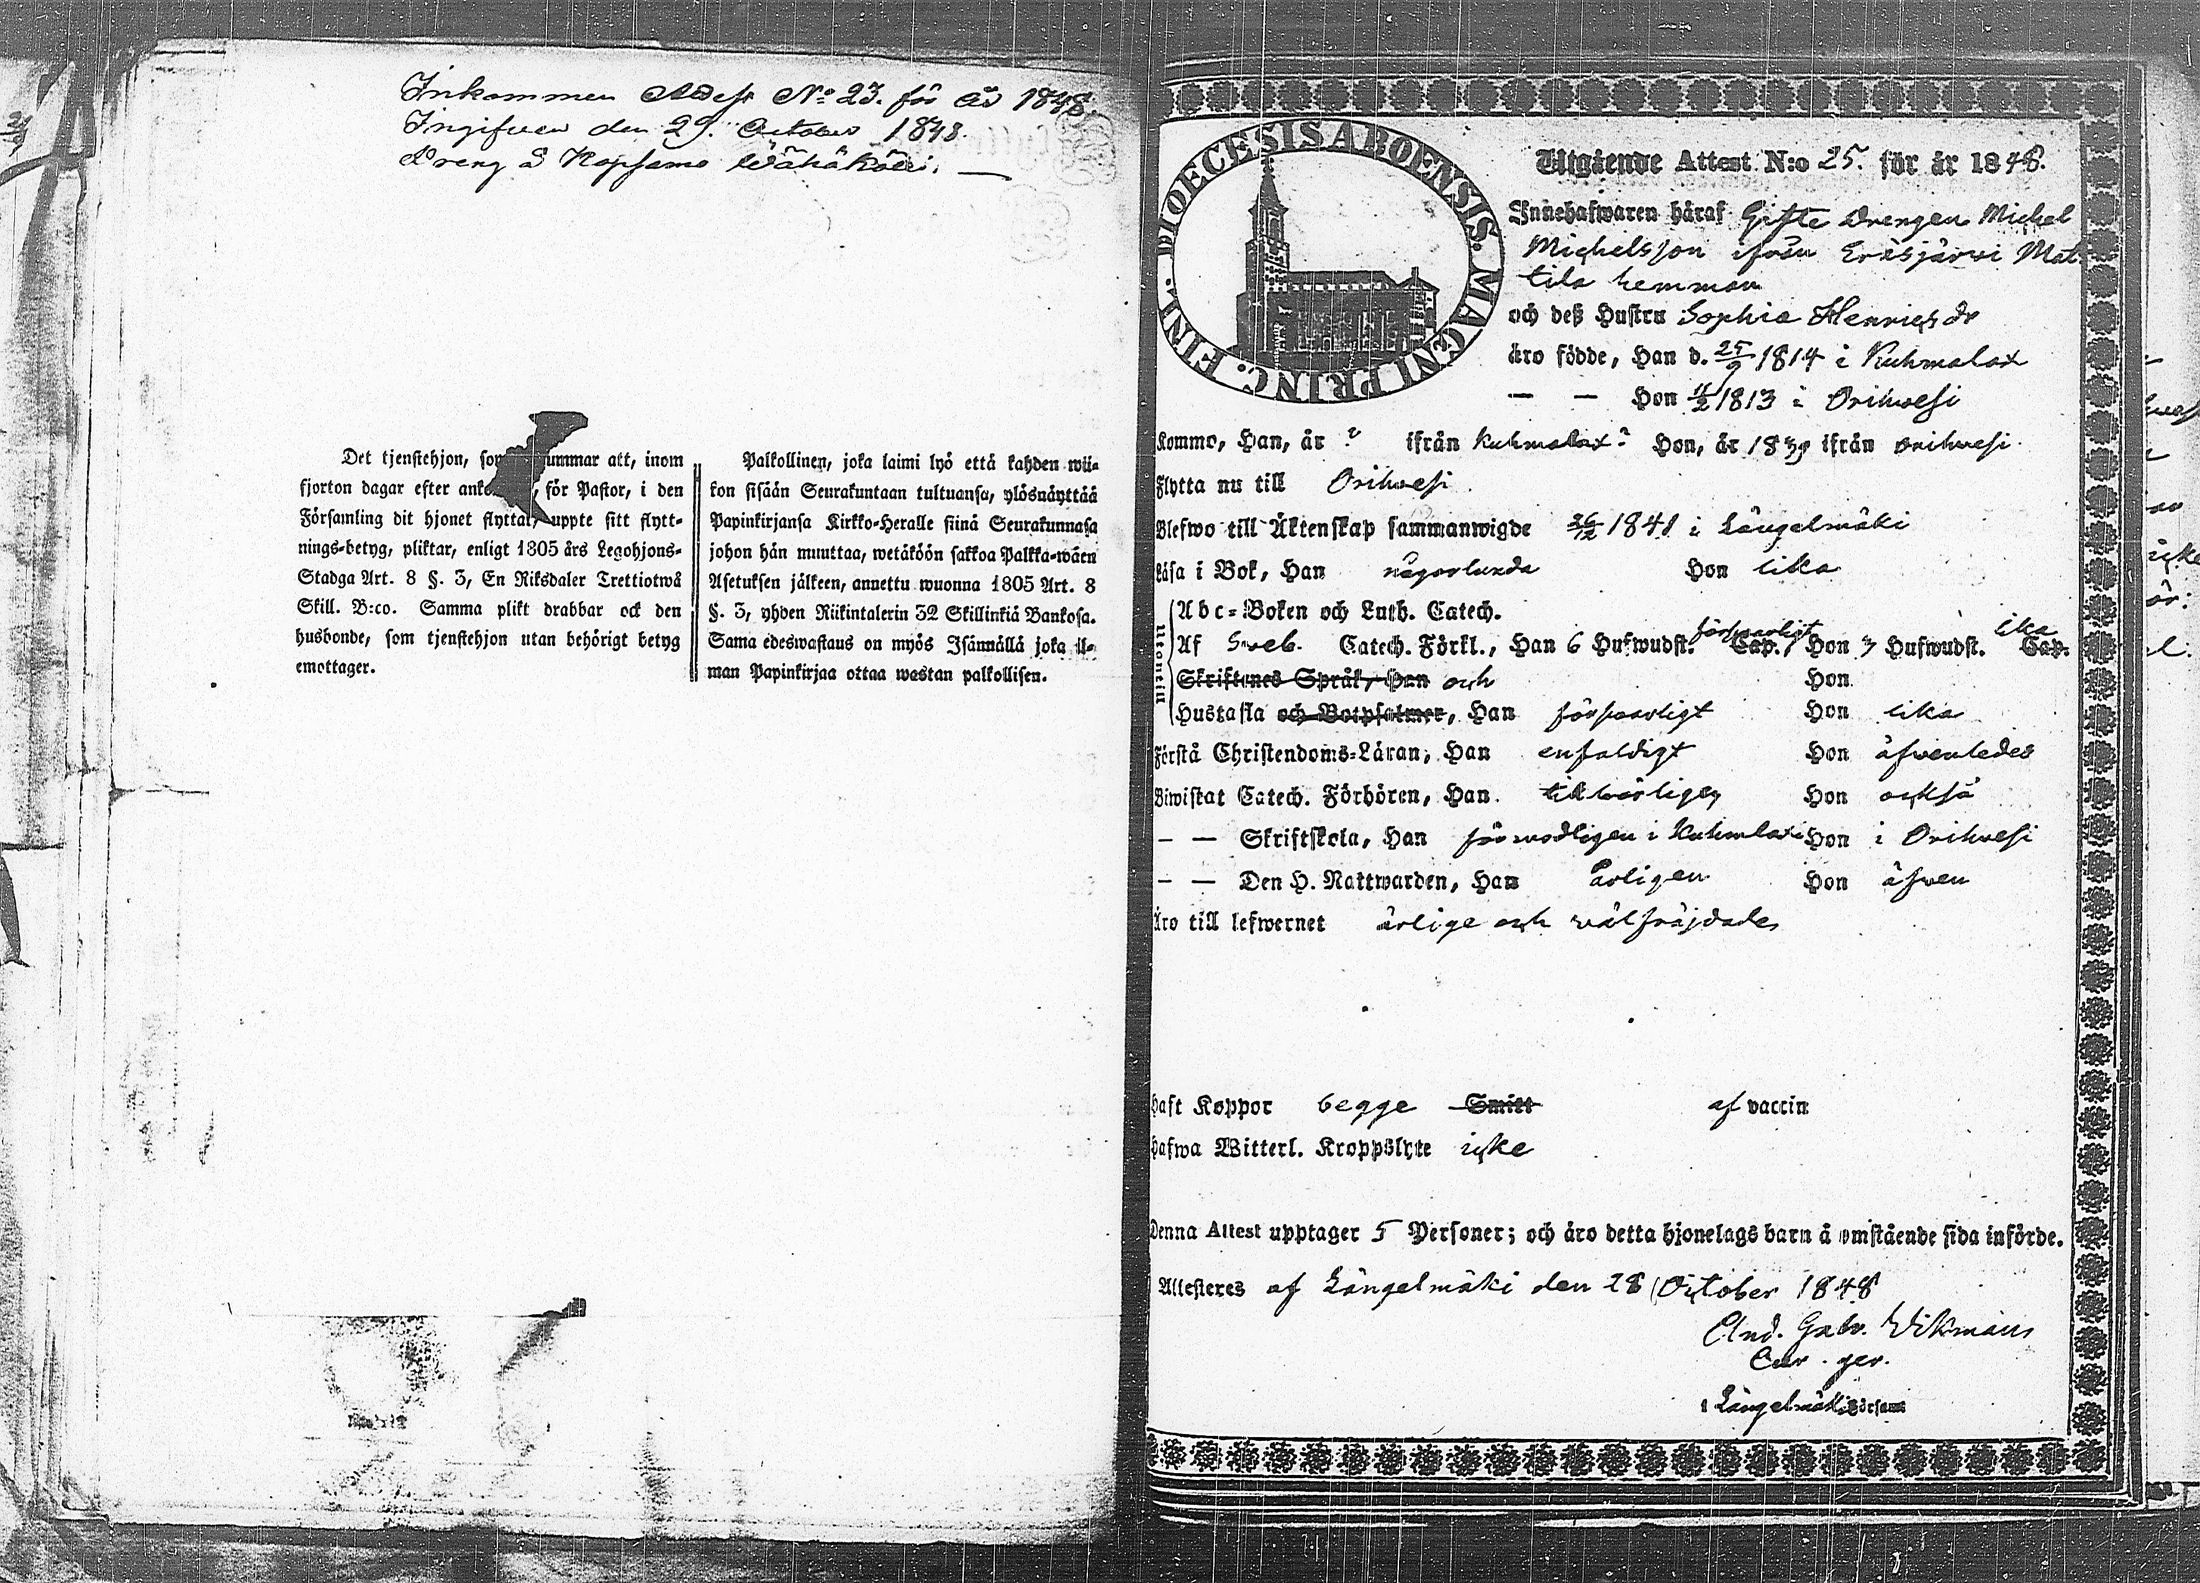 Inkommen Attest No 23. för år 1848.
Ingifven den 29. October 1848.
Dreng å Hopsamo Wähäkölli.
Det tjenstehjon, som ummar att, inom
fjorton dagar efter anko, för Pastor, i den
Församling dit hjonet flyttat, uppte sitt flytt-
nings-betyg, pliktar, enligt 1805 års Legohjons-
Stadga Art. 8 §. 3, En Riksdaler Trettiotwå
Skill. B:co. Samma plikt drabbar ock den
husbonde, som tjenstehjon utan behörigt betyg
emottager.
Palkollinen, joka laimi lyö että kahden wii-
kon sisään Seurakuntaan tultuansa, ylösnäyttää
Papinkirjansa Kirkko-Heralle siinä Seurakunnasa
johon hän muuttaa, wetäköön sakkoa Palkka-wäen
Asetuksen jälkeen, annettu wuonna 1805 Art. 8
§. 3, yhden Riikintalerin 32 Skillinkiä Bankosa.
Sama edeswastaus on myös Isännällä joka il-
man Papinkirjaa ottaa wastan palkollisen.
DIOECESIS ABOENSIS. MAGNI PRINC. FINL.
Utgående Attest N:o 25. för år 1848.
Innehafwaren häraf Gifte Drengen Michel
Michelsson ifrån Eräsjärvi Mat-
tila hemman
och deß Hustru Sophia Henricsdr
äro födde, Han d. 25/9 1814 i Kuhmalax
— — Hon 11/2 1813 i Orihvesi
Kommo, Han, år ? ifrån Kuhmalax? Hon, år 1839 ifrån Orihvesi.
Flytta nu till Orihvesi.
Blefwo till Äktenskap sammanwigde 26/12 1841 i Längelmäki
Läsa i Bok, Han någorlunda Hon lika
Utontill
Abc-Boken och Luth. Catech.
Af Sveb. Catech. Förkl., Han 6 Hufwudst. försvarligt Cap., Hon 3 Hufwudst. lika Cap.
Skriftenes Språk, Han och Hon
Hustafla och Botpsalmer, Han försvarligt Hon lika
Förstå Christendoms-Läran, Han enfaldigt Hon äfvenledes
Biwistat Catech. Förhören, Han tillbörligen Hon också
— — Skriftskola, Han förmodligen i Kuhmalax Hon i Orihvesi
— — Den H. Nattwarden, Han årligen Hon äfven
Äro till lefwernet ärlige och välfräjdade
haft Koppor begge Smitt af vaccin
hafwa Witterl. Kroppslyte icke
Denna Attest upptager 5 Personer; och äro detta hjonelags barn å omstående sida införde.
Attesteres af Längelmäki den 28 October 1848
And. Gabr. Wikman
Cur. ger.
i Längelmäki Församl